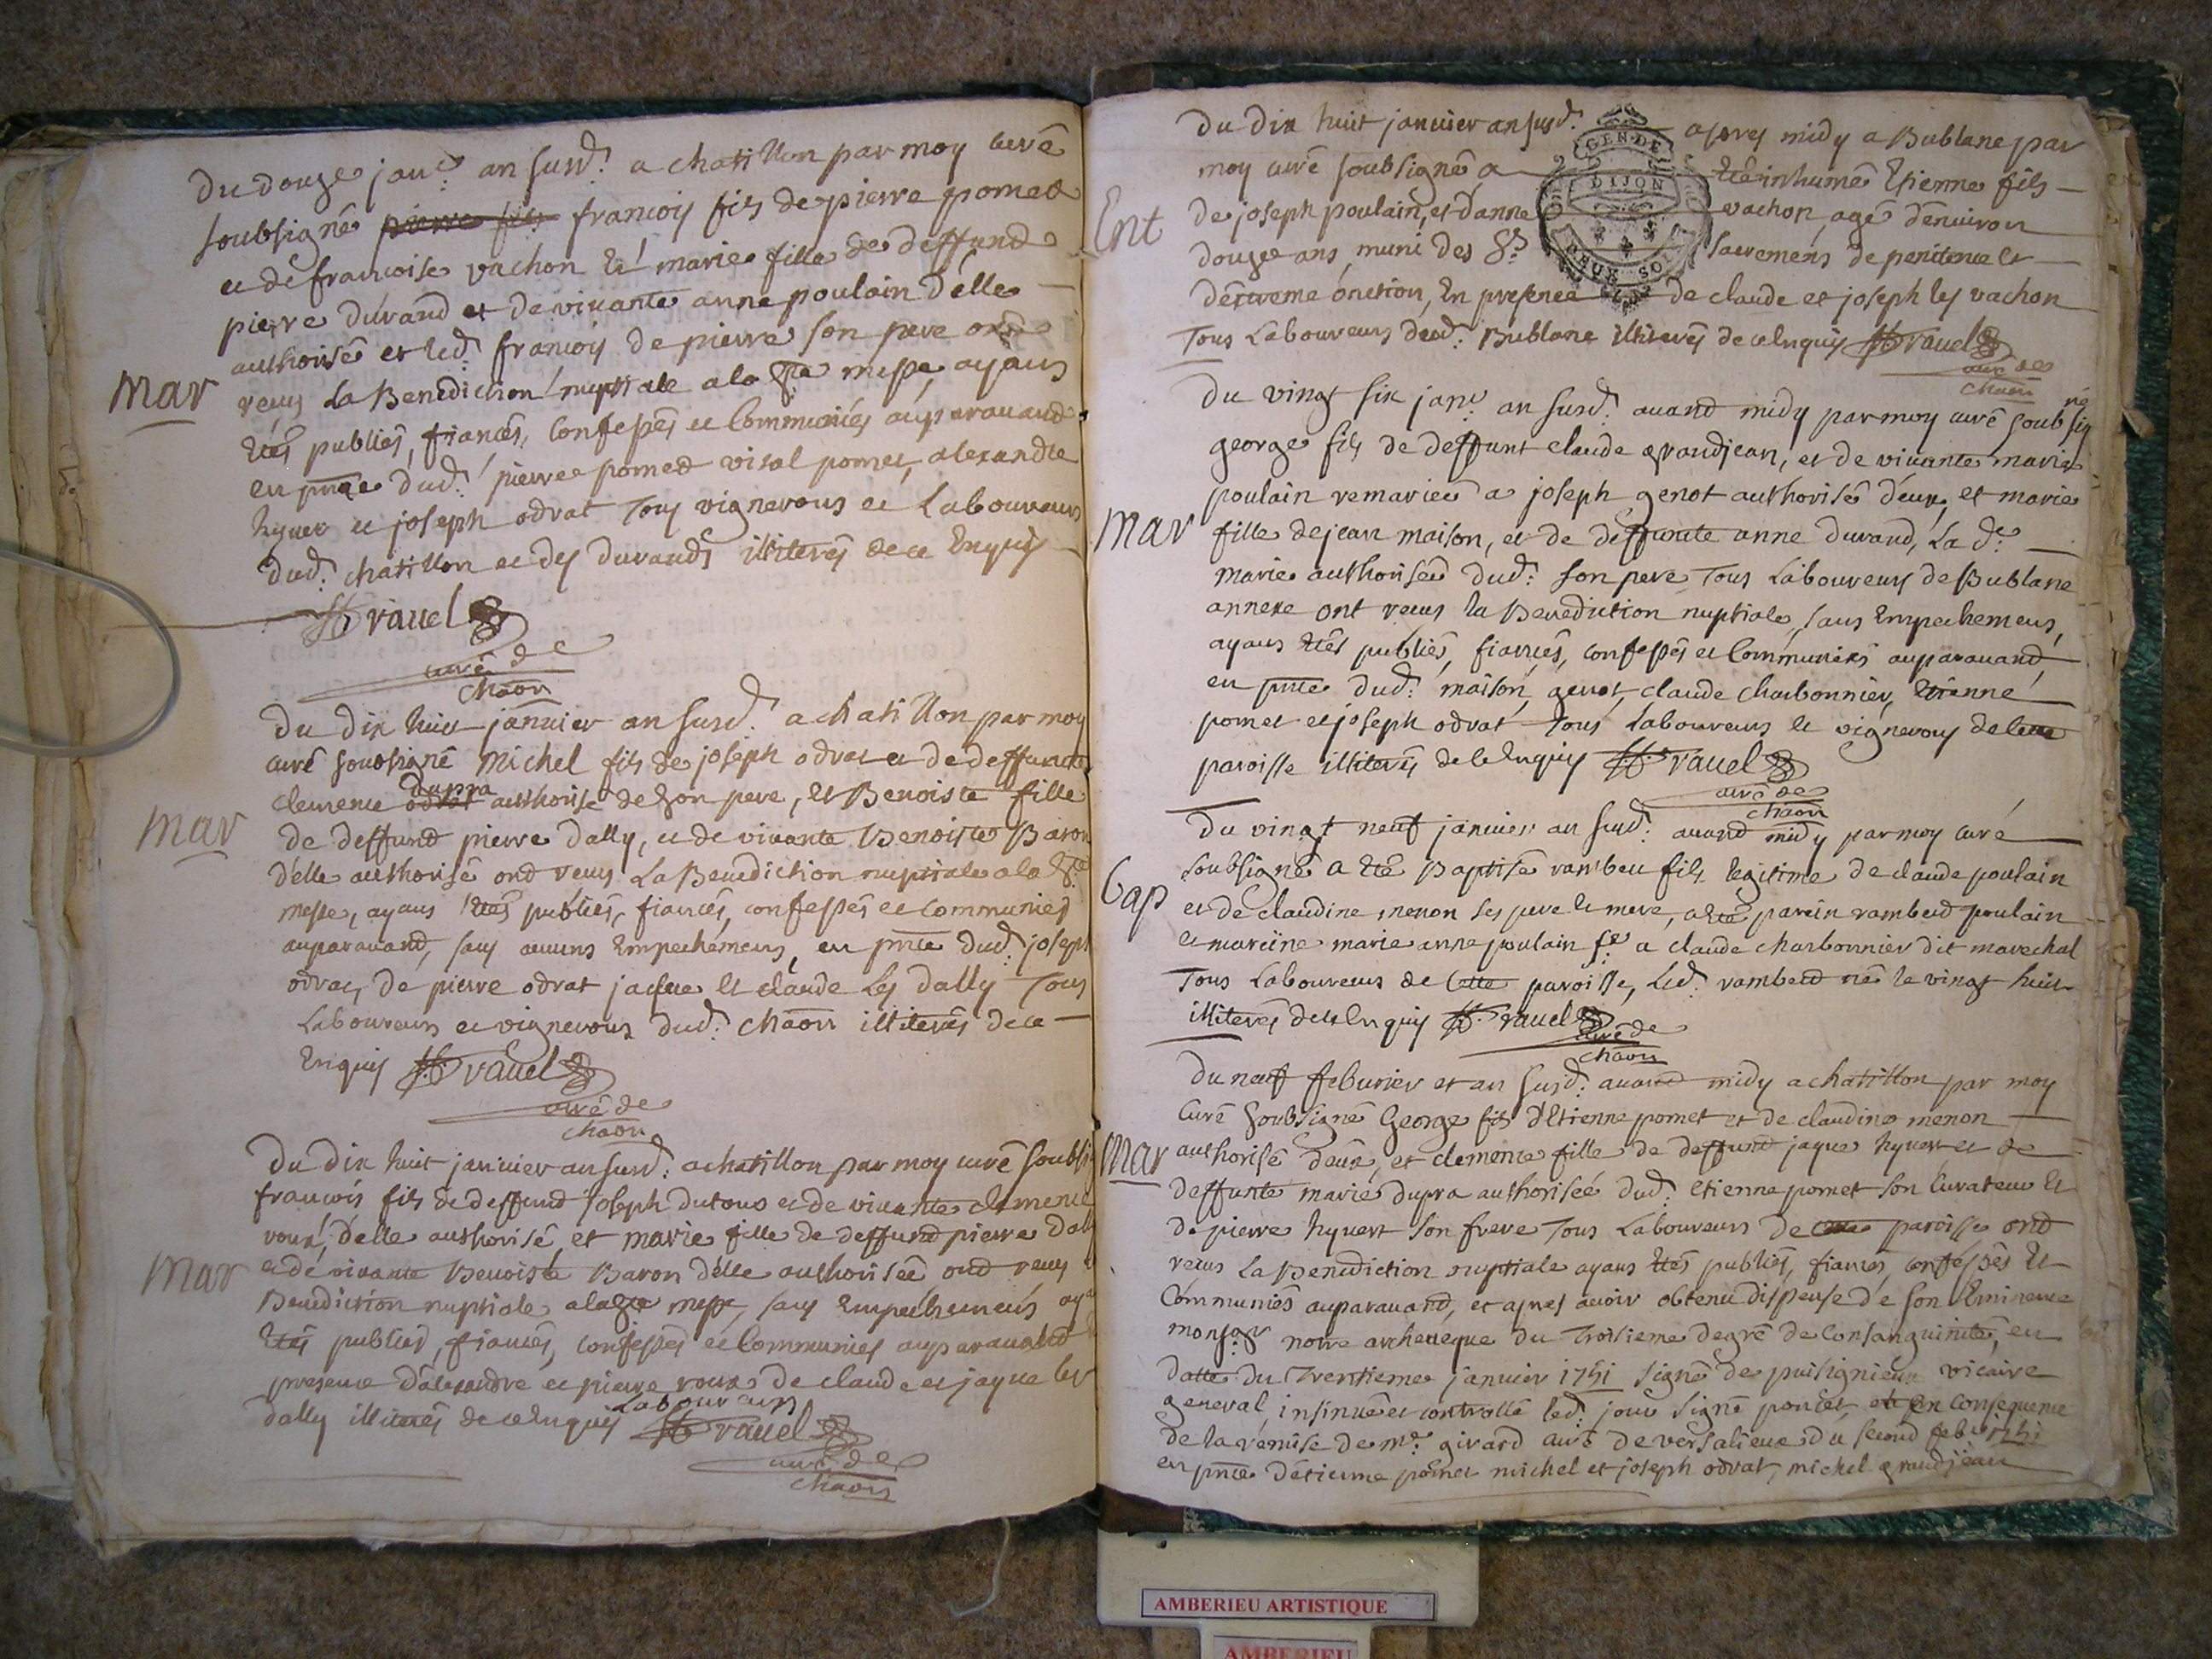 Du douze janr. an susd. a chatillon par moy curé
soubsigné pierre fils francois fils de pierre pomet
et de francoise vachon et marie fille de deffund
pierre durand et de vivante anne poulain d'elle
authorisé et led. francois de pierre son pere ont
Mar
receus La Benediction nuptiale a la Ste messe, ayans
étés publiés, fiancés, confessés et Communiés auparavand
en pnce dud. pierre pomed vital pomet, alexandre
hyvert et joseph odrat Tous vignerons et Laboureurs
dud. chatillon et des durands illiterés de ce Enquis
ravel
curé de
chaon
Du dix huit janvier an susd. a chatillon par moy
curé soussigné Michel fils de joseph odrat et de deffuncte
dupra
clemence odrat authorisé de son pere, et Benoiste fille
Mar
de deffund pierre dally, et de vivante Benoiste Baron
d'elle authorisé ond receus La Benediction nuptiale a la Ste
messe, ayans étés publiés, fiancés, confessés et communiés
auparavand, sans aucuns Empechemens, en pnce dud. joseph
odrat, de pierre odrat jaque et claude Les dally Tous
Laboureurs et vignerons dud. chaon illiterés de ce
Enquis ravel
curé de
chaon
Du dix huit janvier an susd. a chatillon par moy curé soubsi
francois fils de deffund joseph dutous et de vivante clemence
roux, d'elle authorisé et marie fille de deffund pierre dall
Mar
et de vivante Benoiste Baron d'elle authoriseé ond receus
Benediction nuptiale, a la Ste messe, sans Empechemens aya
étés publiés, fiancés, confessés et Communiés auparavand
presence d'alexandre et pierre roux de claude et jaque les
Laboureurs
dally illiterés de ce Enquis ravel
curé de
chaon
Du dix huit janvier an susd. apres midy a Bublane par
moy curé soubsigné a été inhumé Etienne fils
GEN. DE
DIJON
Ent
de joseph poulain, et d'anne vachon, agé d'environ
douze ans, muni des Sts sacremens de penitence et
d'extreme onction, En presence de claude et joseph les vachon
Tous Laboureurs dud. Bublane illiterés de ce Enquis ravel
curé de
chaon
Du vingt six janr. an susd. avand midy par moy curé soubsigné
george fils de deffunt claude grandjean, et de vivante marie
poulain remarieé a joseph genot authorisé d'eux, et marie
Mar
fille de jean maison, et de deffuncte anne durand, La de.
marie authoriseé dud. son pere Tous Laboureurs de Bublane
annexe ont receus la Benediction nuptiale, sans Empechemens,
ayans étés publiés, fiancés, confessés et Communiés auparavand,
en pnce dud. maison, genot, claude charbonnier, Etienne
pomet et joseph odrat Tous Laboureurs et vignerons de Cette
paroisse illiterés de ce Enquis ravel
curé de
chaon
Du vingt neuf janvier an susd. avand midy par moy curé
soubsigné a été Baptisé ramber fils legitime de claude poulain
Bap
et de claudine menon ses pere et mere, a été parein ramberd poulain
et mareine marie anne poulain fe. a claude charbonnier dit marechal
Tous Laboureurs de Cette paroisse, Led. ramberd né le vingt huit
illiterés de ce Enquis ravel
curé de
chaon
Du neuf feburier et an susd. avand midy a chatillon par moy
Curé soubsigné George fils d'Etienne pomet et de claudine menon
Mar
authorisé d'eux, et clemence fille de deffund jaque hyvert et de
deffunte marie dupra authoriseé dud. etienne pomet son Curateur et
de pierre hyvert son frere Tous Laboureurs de Cette paroisse ond
receus La Benediction nuptiale ayans étés publiés, fiancés, confessés et
Communiés auparavand, et apres avoir obtenu dispense de son Eminence
monsgr notre archeveque du Troisieme degré de Consanguinité, en
datte du Trentieme janvier 1751 signé de puisignieux vicaire
general, insinué et controllé led. jour signé poncet, et En consequence
de la remise de mr. girard curé de versalieux du second febr 1751
en pnce d'etienne pomet michel et joseph odrat, michel grandjean
AMBERIEU ARTISTIQUE
AMBERIEU